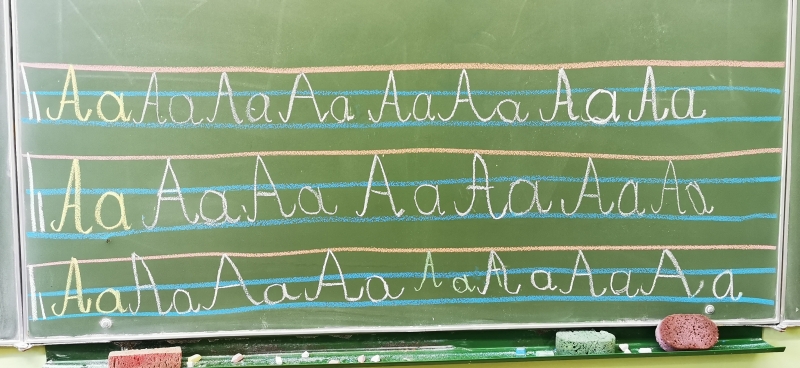 Aa Aa Aa Aa Aa Aa Aa Aa
Aa Aa Aa Aa Aa Aa Aa
Aa Aa Aa Aa Aa Aa Aa Aa